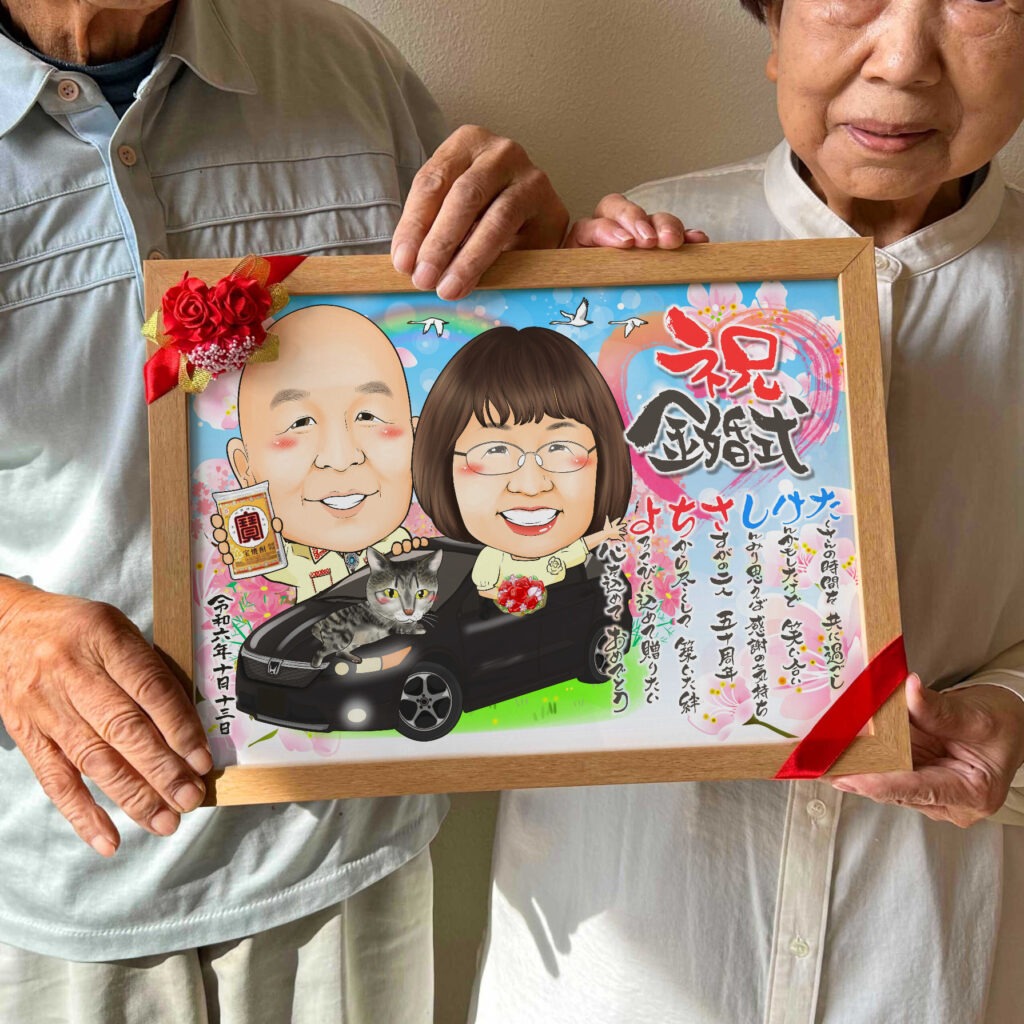 祝
金婚式
たくさんの時間を 共に過ごし
けんかもしたけど 笑い合い
しんみり思えば 感謝の気持ち
さすがの二人 五十周年
ちから尽くして 築いた絆
よ に込めて贈りたい
心を込めて おめでとう
令和六年十月十三日
寶
宝焼酎